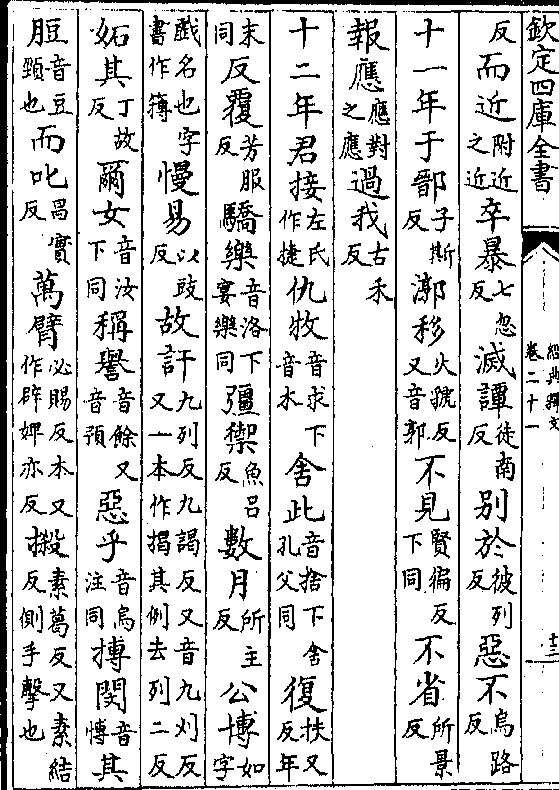 欽定四庫全書
經典釋文
卷二十一
十三
反而近附近之近卒暴七忽反滅譚徒南反别於彼列反惡不烏路反
十一年于鄑子斯反漷移火號反又音郭不見賢徧反下同不省所景反
報應應對之應過我古禾反
十二年君接左氏作捷仇牧音求下音木舍此音捨下舍孔父同復扶又反年
末同反覆芳服反驕樂音洛下宴樂同彊禦魚吕反數月所主反公博如字
戲名也字書作簿慢易以豉反故訐九列反九謁反又音九刈反又一本作揭其例去列二反
妬其丁故反爾女音汝下同稱譽音餘又音預惡乎音烏注同摶閔音慱其
脰音豆頸也而叱昌實反萬臂必賜反本又作辟婢亦反摋素葛反又素結反側手擊也